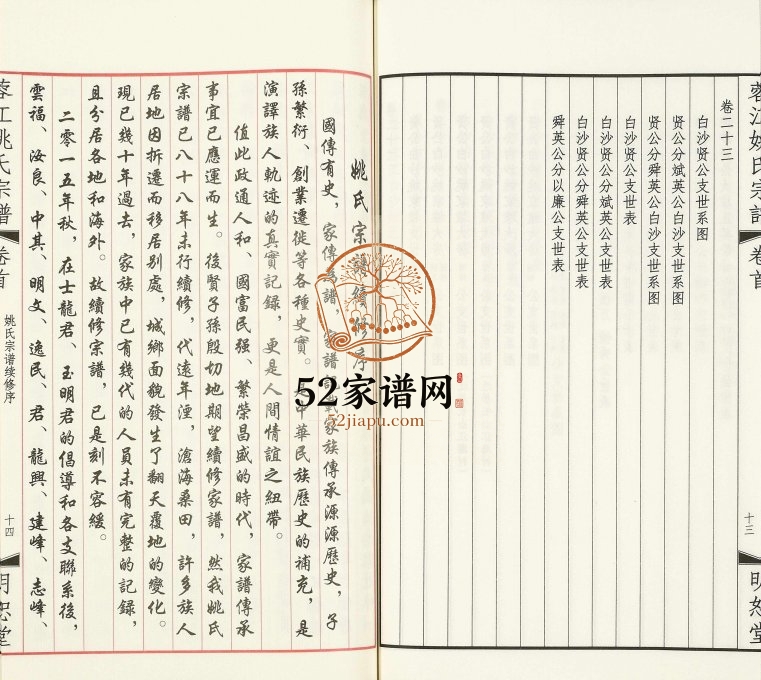 蓉江姚氏宗谱
卷首
十三
明恕堂
卷二十三
白沙贤公支世系图
贤公分斌英公白沙支世系图
贤公分舜英公白沙支世系图
白沙贤公支世表
白沙贤公分斌英公支世表
白沙贤公分舜英公支世表
舜英公分以廉公支世表
姚氏宗譜續修序
國傳有史，家傳有譜，家譜記載家族傳承源源歷史，子
孫繁衍、創業遷徙等各種史實。是中華民族歷史的補充，是
演譯族人軌迹的真實記録，更是人間情誼之紐帶。
值此政通人和、國富民强、繁榮昌盛的時代，家譜傳承
事宜已應運而生。後賢子孫殷切地期望續修家譜，然我姚氏
宗譜已八十八年未行續修，代遠年湮，滄海桑田，許多族人
居地因拆遷而移居别處，城鄉面貌發生了翻天覆地的變化。
現已幾十年過去，家族中已有幾代的人員未有完整的記録，
且分居各地和海外。故續修宗譜，已是刻不容緩。
二零一五年秋，在士龍君、玉明君的倡導和各支聯系後，
雲福、汝良、中其、明文、逸民、君、龍興、建峰、志峰、
蓉江姚氏宗譜
卷首
姚氏宗谱续修序
十四
明恕堂
52家谱网
52jiapu.com